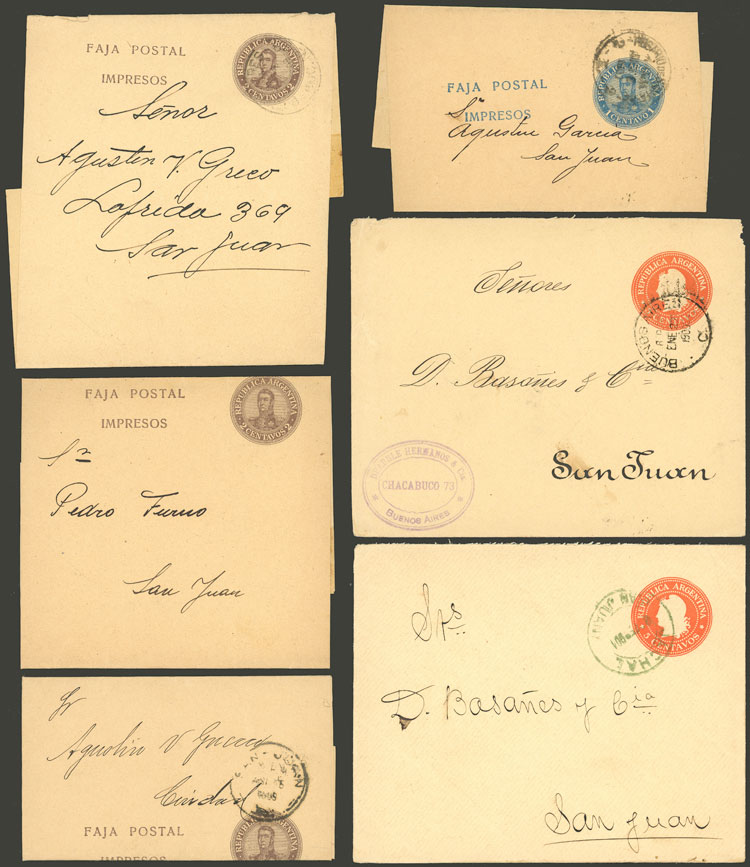 FAJA POSTAL
IMPRESOS
REPUBLICA ARGENTINA
2 CENTAVOS 2
Señor
Agustin V. Greco
Lafrida 369
San Juan
FAJA POSTAL
IMPRESOS
REPUBLICA ARGENTINA
1 CENTAVO 1
Sr
Agustin Garcia
San Juan
REPUBLICA ARGENTINA
CENTAVOS
BUENOS AIRES
ENE
Señores
D. Basañes & Cia
San Juan
HERMANOS & Cia
CHACABUCO 73
BUENOS AIRES
FAJA POSTAL
IMPRESOS
REPUBLICA ARGENTINA
2 CENTAVOS 2
Sr
Pedro Furno
San Juan
REPUBLICA ARGENTINA
5 CENTAVOS
JUAN
901
Srs
D. Basañes y Cia
San Juan
Sr
Agustin V
Ciudad
SAN JUAN
FAJA POSTAL
IMPRESOS
REPUBLICA ARGENTINA